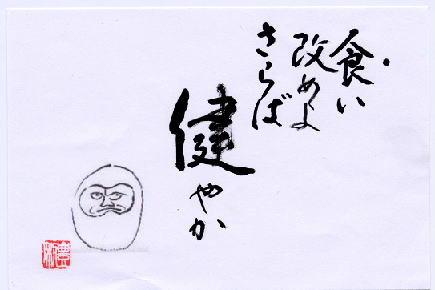 食い
改めよ
さらば
健やか